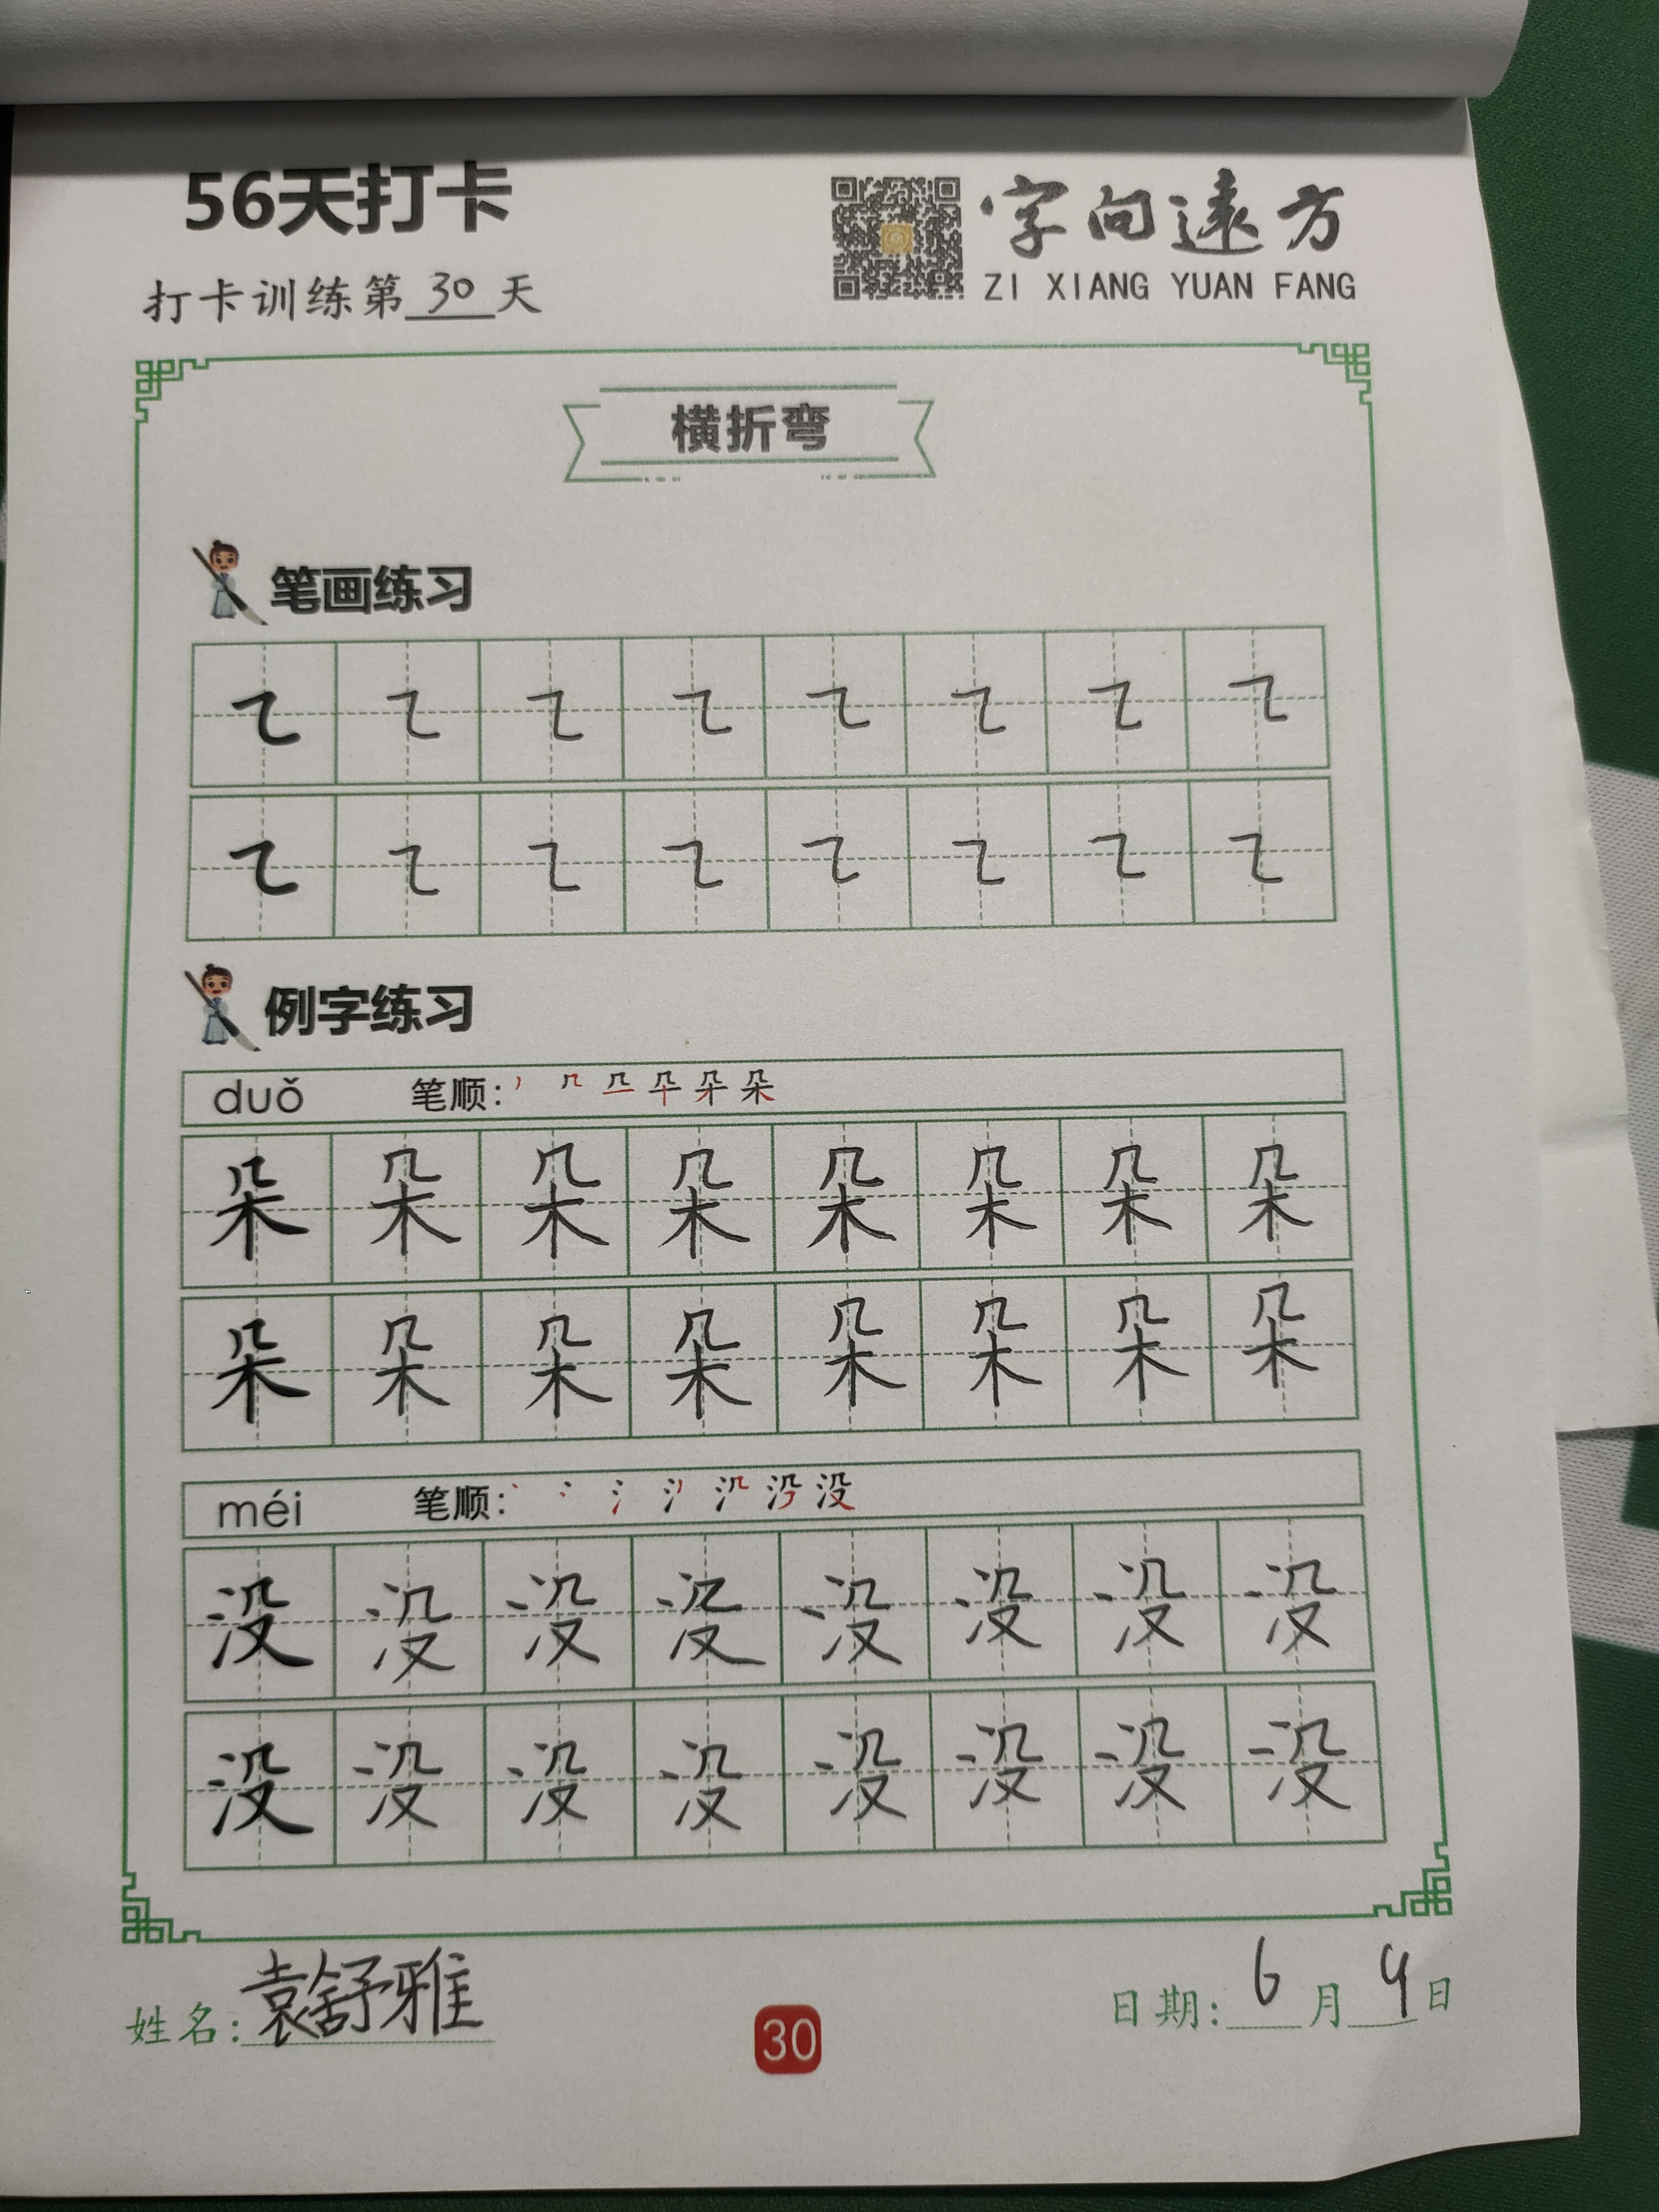 56天打卡
字向远方
ZI XIANG YUAN FANG
打卡训练第30天
横折弯
笔画练习
㇍ ㇍ ㇍ ㇍ ㇍ ㇍ ㇍ ㇍
㇍ ㇍ ㇍ ㇍ ㇍ ㇍ ㇍ ㇍
例字练习
duǒ 笔顺:
朵 朵 朵 朵 朵 朵 朵 朵
朵 朵 朵 朵 朵 朵 朵 朵
méi 笔顺:
没 没 没 没 没 没 没 没
没 没 没 没 没 没 没 没
姓名:袁舒雅
30
日期:6月9日